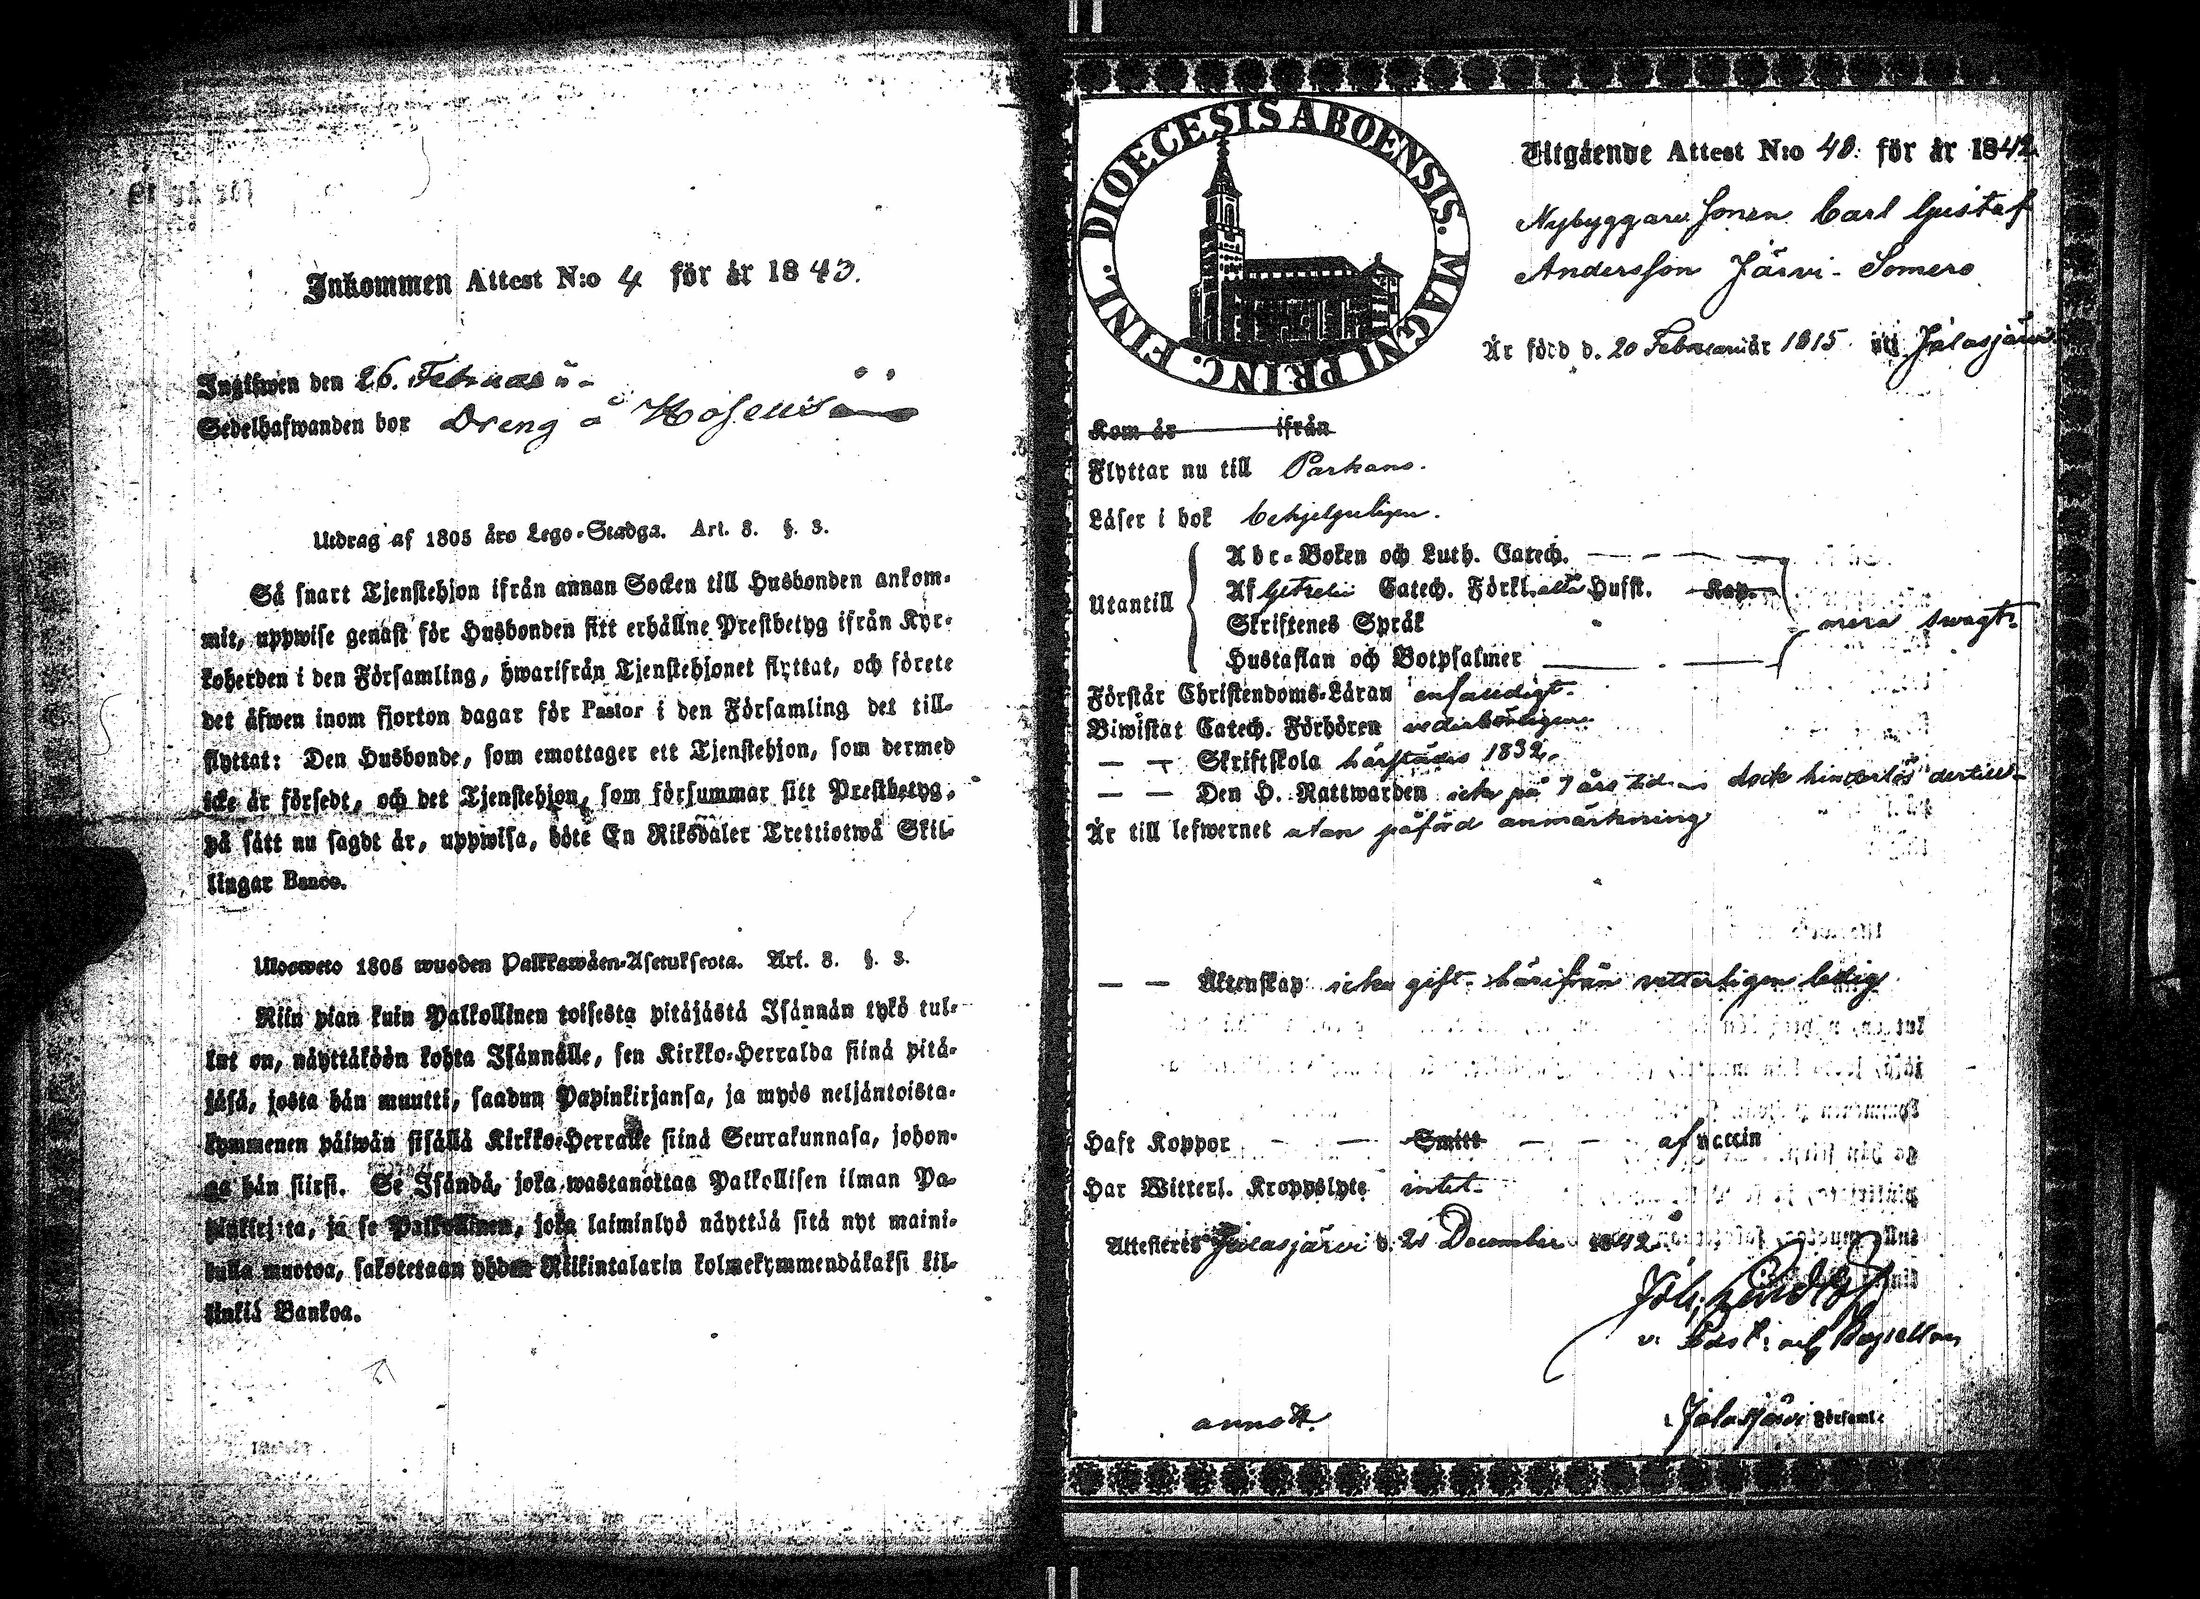 Inkommen Attest N:o 4 för år 1843.
Ingifwen den 26. Februari
Sedelhafwanden bor Dreng å
Utdrag af 1805 års Lego-Stadga. Art. 8. §. 3.
Så snart Tjenstehjon ifrån annan Socken till Husbonden ankom-
mit, uppwise genast för Husbonden sitt erhållne Prestbetyg ifrån Kyr-
koherden i den Församling, hwarifrån Tjenstehjonet flyttat, och förete
det äfwen inom fjorton dagar för Pastor i den Församling det till-
flyttat: Den Husbonde, som emottager ett Tjenstehjon, som dermed
icke är försedt, och det Tjenstehjon, som försummar sitt Prestbetyg,
på sätt nu sagdt är, uppwisa, böte En Riksdaler Trettiotwå Skil-
lingar Banco.
Ulosweto 1805 wuoden Palkkawäen-Asetuksesta. Art. 8. §. 3.
Niin pian kuin Palkollinen toisesta pitäjästä Isännän tykö tul-
lut on, näyttäköön kohta Isännälle, sen Kirkko-Herralda siinä pitä-
jäsä, josta hän muutti, saadun Papinkirjansa, ja myös neljäntoista-
kymmenen päiwän sisällä Kirkko-Herralle siinä Seurakunnasa, johon-
ga hän siirsi. Se Isändä, joka wastanottaa Palkollisen ilman Pa-
pinkirjata, ja se Palkollinen, joka laiminlyö näyttää sitä nyt maini-
tulla muotoa, sakotetaan yhden Riikintalarin kolmekymmendäkaksi kil-
linkiä Bankoa.
DIOECESIS ABOENSIS. MAGNI PRINC. FINL.
Utgående Attest N:o 40. för år 1842
Nybyggare Sonen Carl Gustaf
Andersson Järvi-Somero
Är född d. 20 Februarii år 1815 uti Jalasjärvi
Kom år ifrån
Flyttar nu till Parkano.
Läser i bok behjelpeligen.
Utantill
Abc-Boken och Luth. Catech.
Af Getzelii Catech. Förkl. alla Hufst. Kap.
Skriftenes Språk
mera swagt.
Hustaflan och Botpsalmer
Förstår Christendoms-Läran enfaldigt.
Biwistat Catech. Förhören
— — Skriftskola härstädes 1832.
— — Den H. Nattwarden icke på 7 års tid dock hinderlös dertill
Är till lefwernet utan påförd anmärkning
— — Äktenskap icke gift. härifrån vetterligen ledig
Haft Koppor — — Smitt — — af vaccin
Har Witterl. Kroppslyte intet.
Attesteras Jalasjärvi d. 21 December 1842
v. Past: och
i Jalasjärvi Församl: